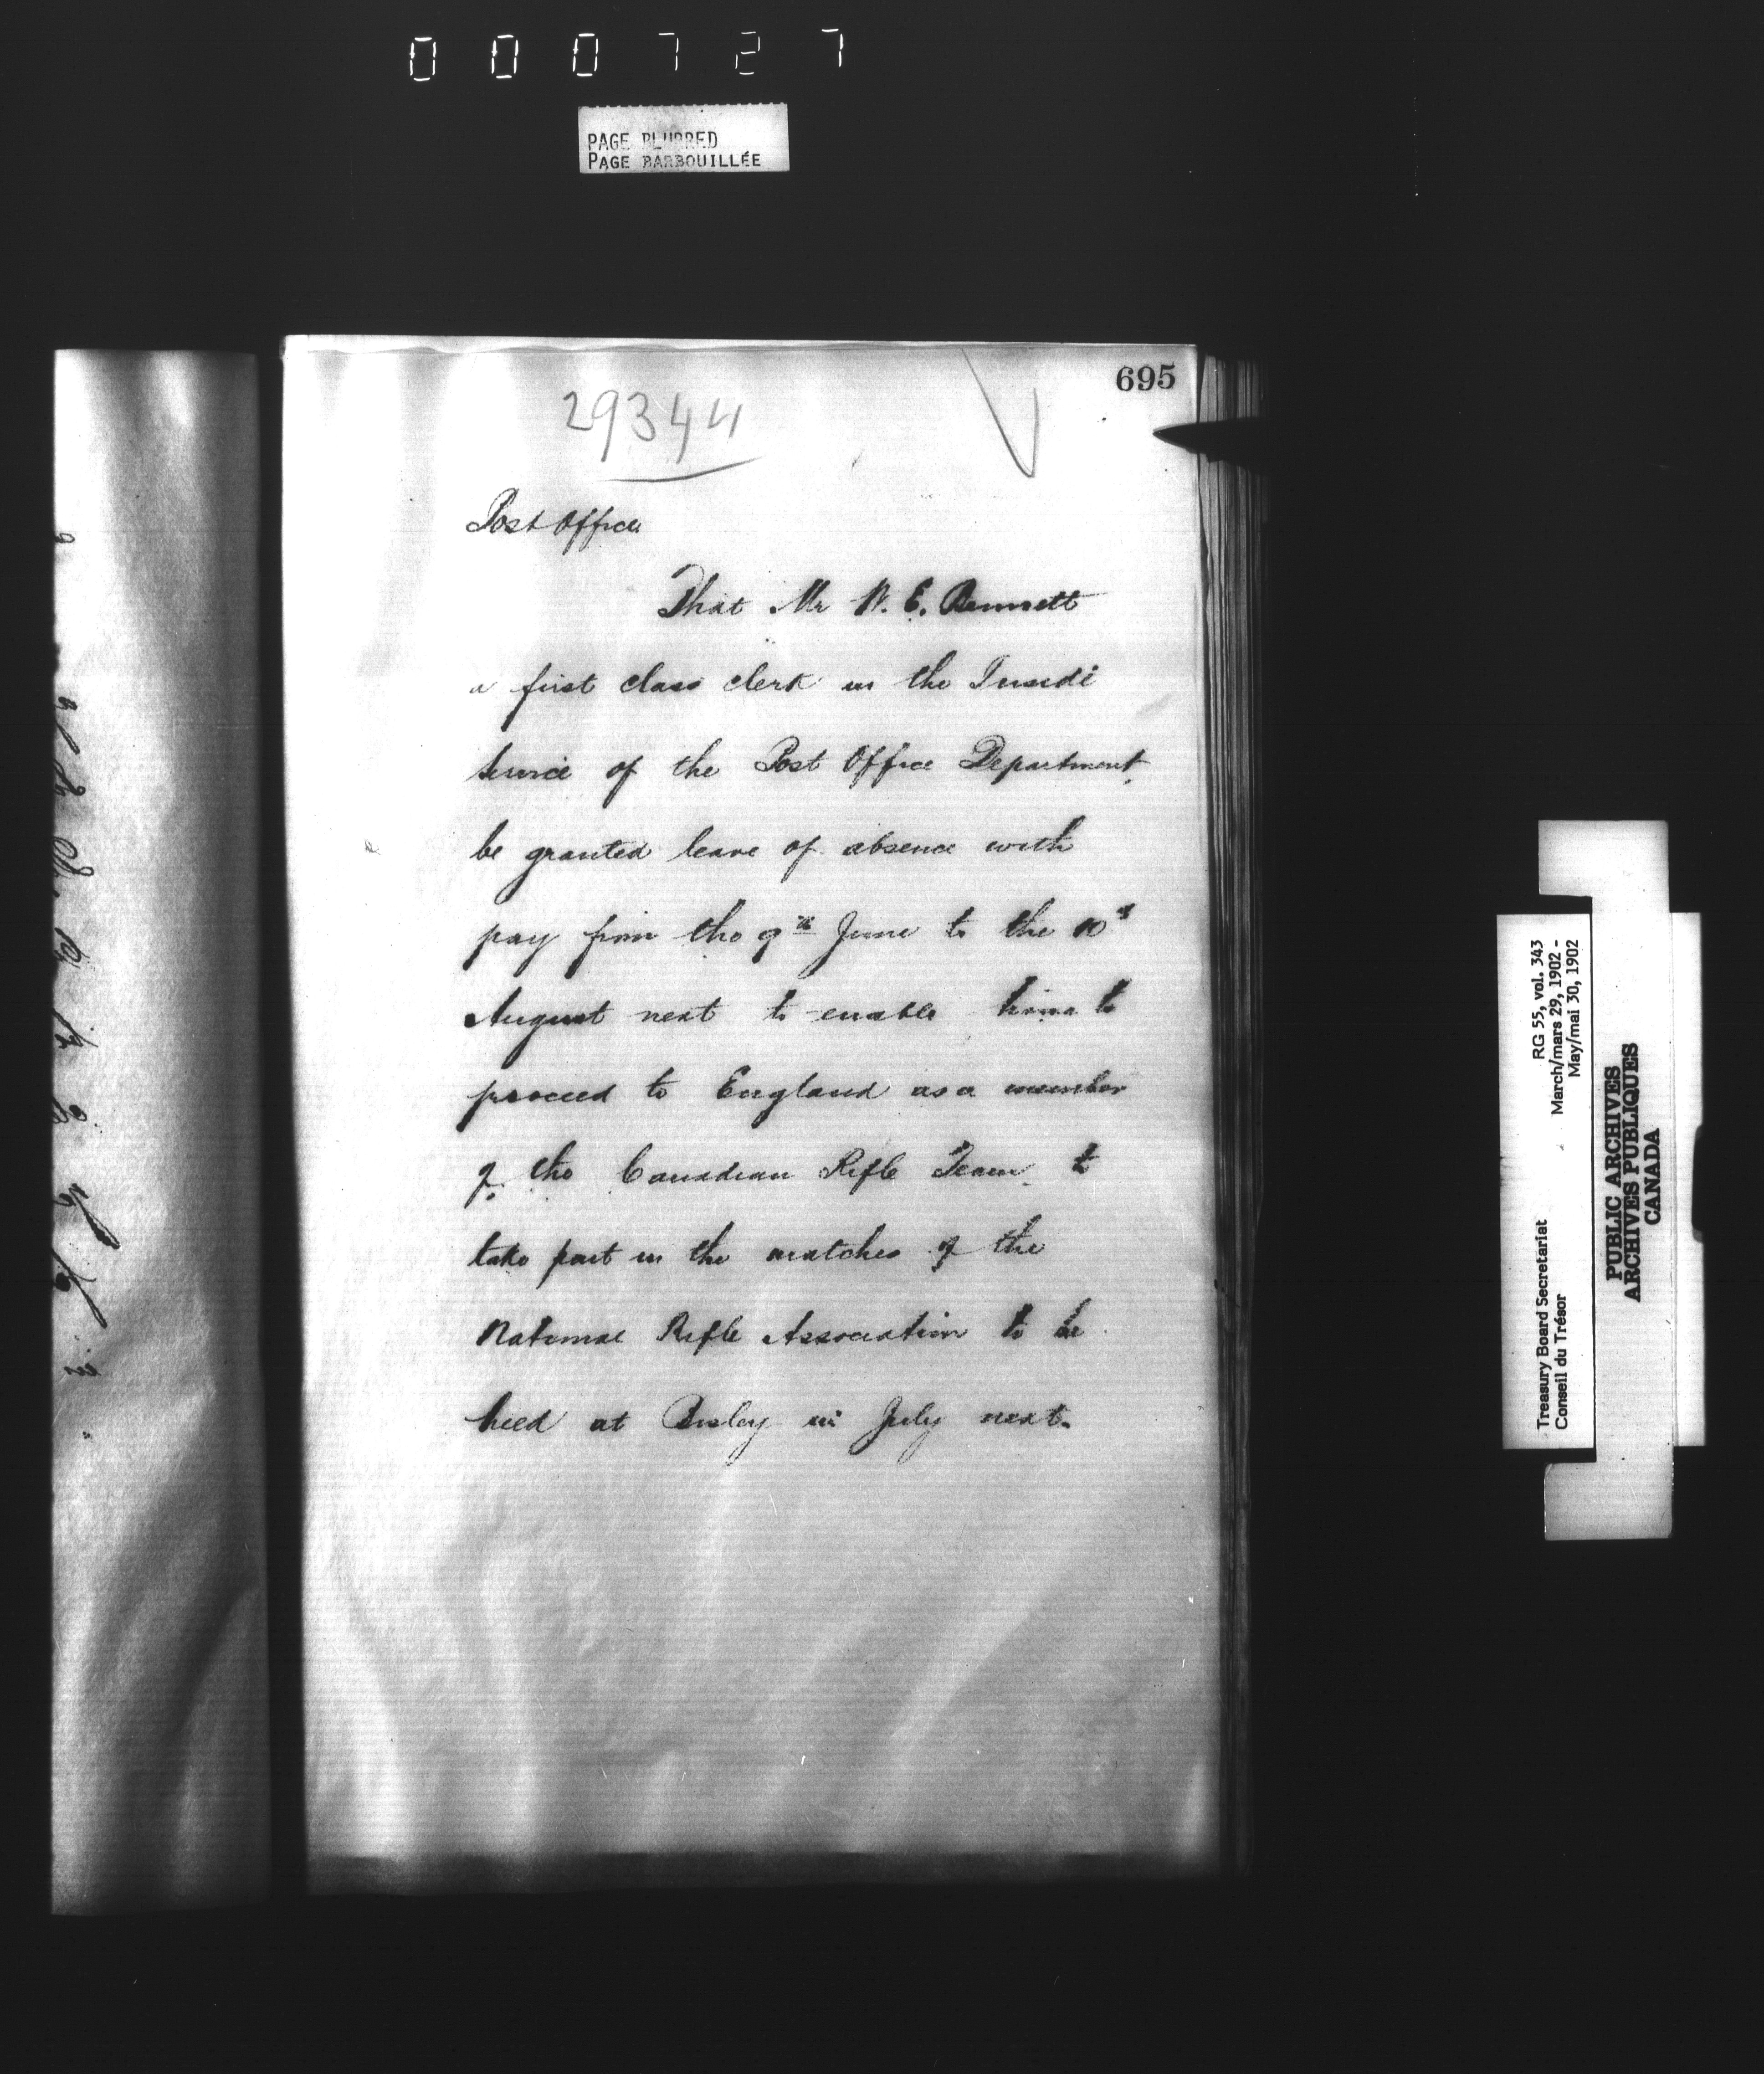 000727
PAGE BLURRED
PAGE BARBOUILLÉE
695
29344
Post Office
That Mr W. E. Bennett
a first class clerk in the Inside
Service of the Post Office Department,
be granted leave of absence with
pay from the 9th June to the 10th
August next to enable him to
proceed to England as a member
of the Canadian Rifle Team to
take part in the matches of the
National Rifle Association to be
held at Bisley in July next.
Treasury Board Secretariat RG 55, vol. 343
Conseil du Trésor March/mars 29, 1902 -
May/mai 30, 1902
PUBLIC ARCHIVES
ARCHIVES PUBLIQUES
CANADA